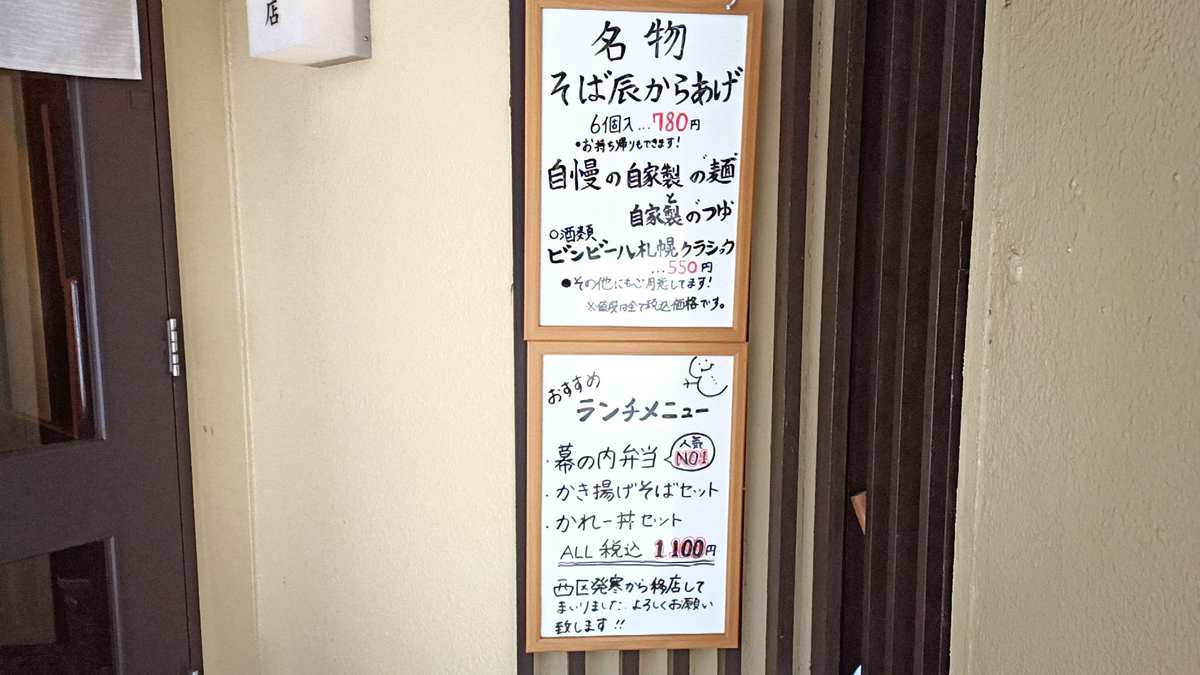 店
名物
そば辰からあげ
6個入…780円
•お持ち帰りもできます!
自慢の自家製の麺
と
自家製のつゆ
○酒類
ビンビール札幌クラシック
…550円
●その他にもご用意してます!
※値段は全て税込価格です。
おすすめ
ランチメニュー
・幕の内弁当 人気NO1
・かき揚げそばセット
・かれー丼セット
ALL 税込 1100円
西区発寒から移店して
まいりました。よろしくお願い
致します!!